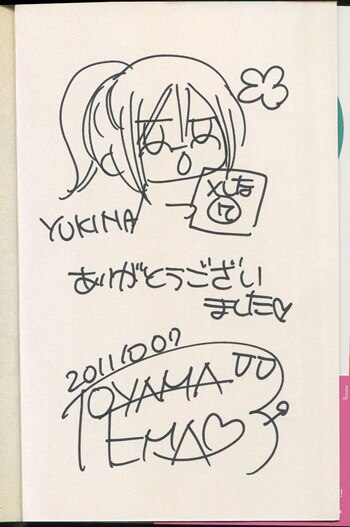 YUKINA
ありがとうござい
ました♡
20111007
TOYAMA
EMA♡